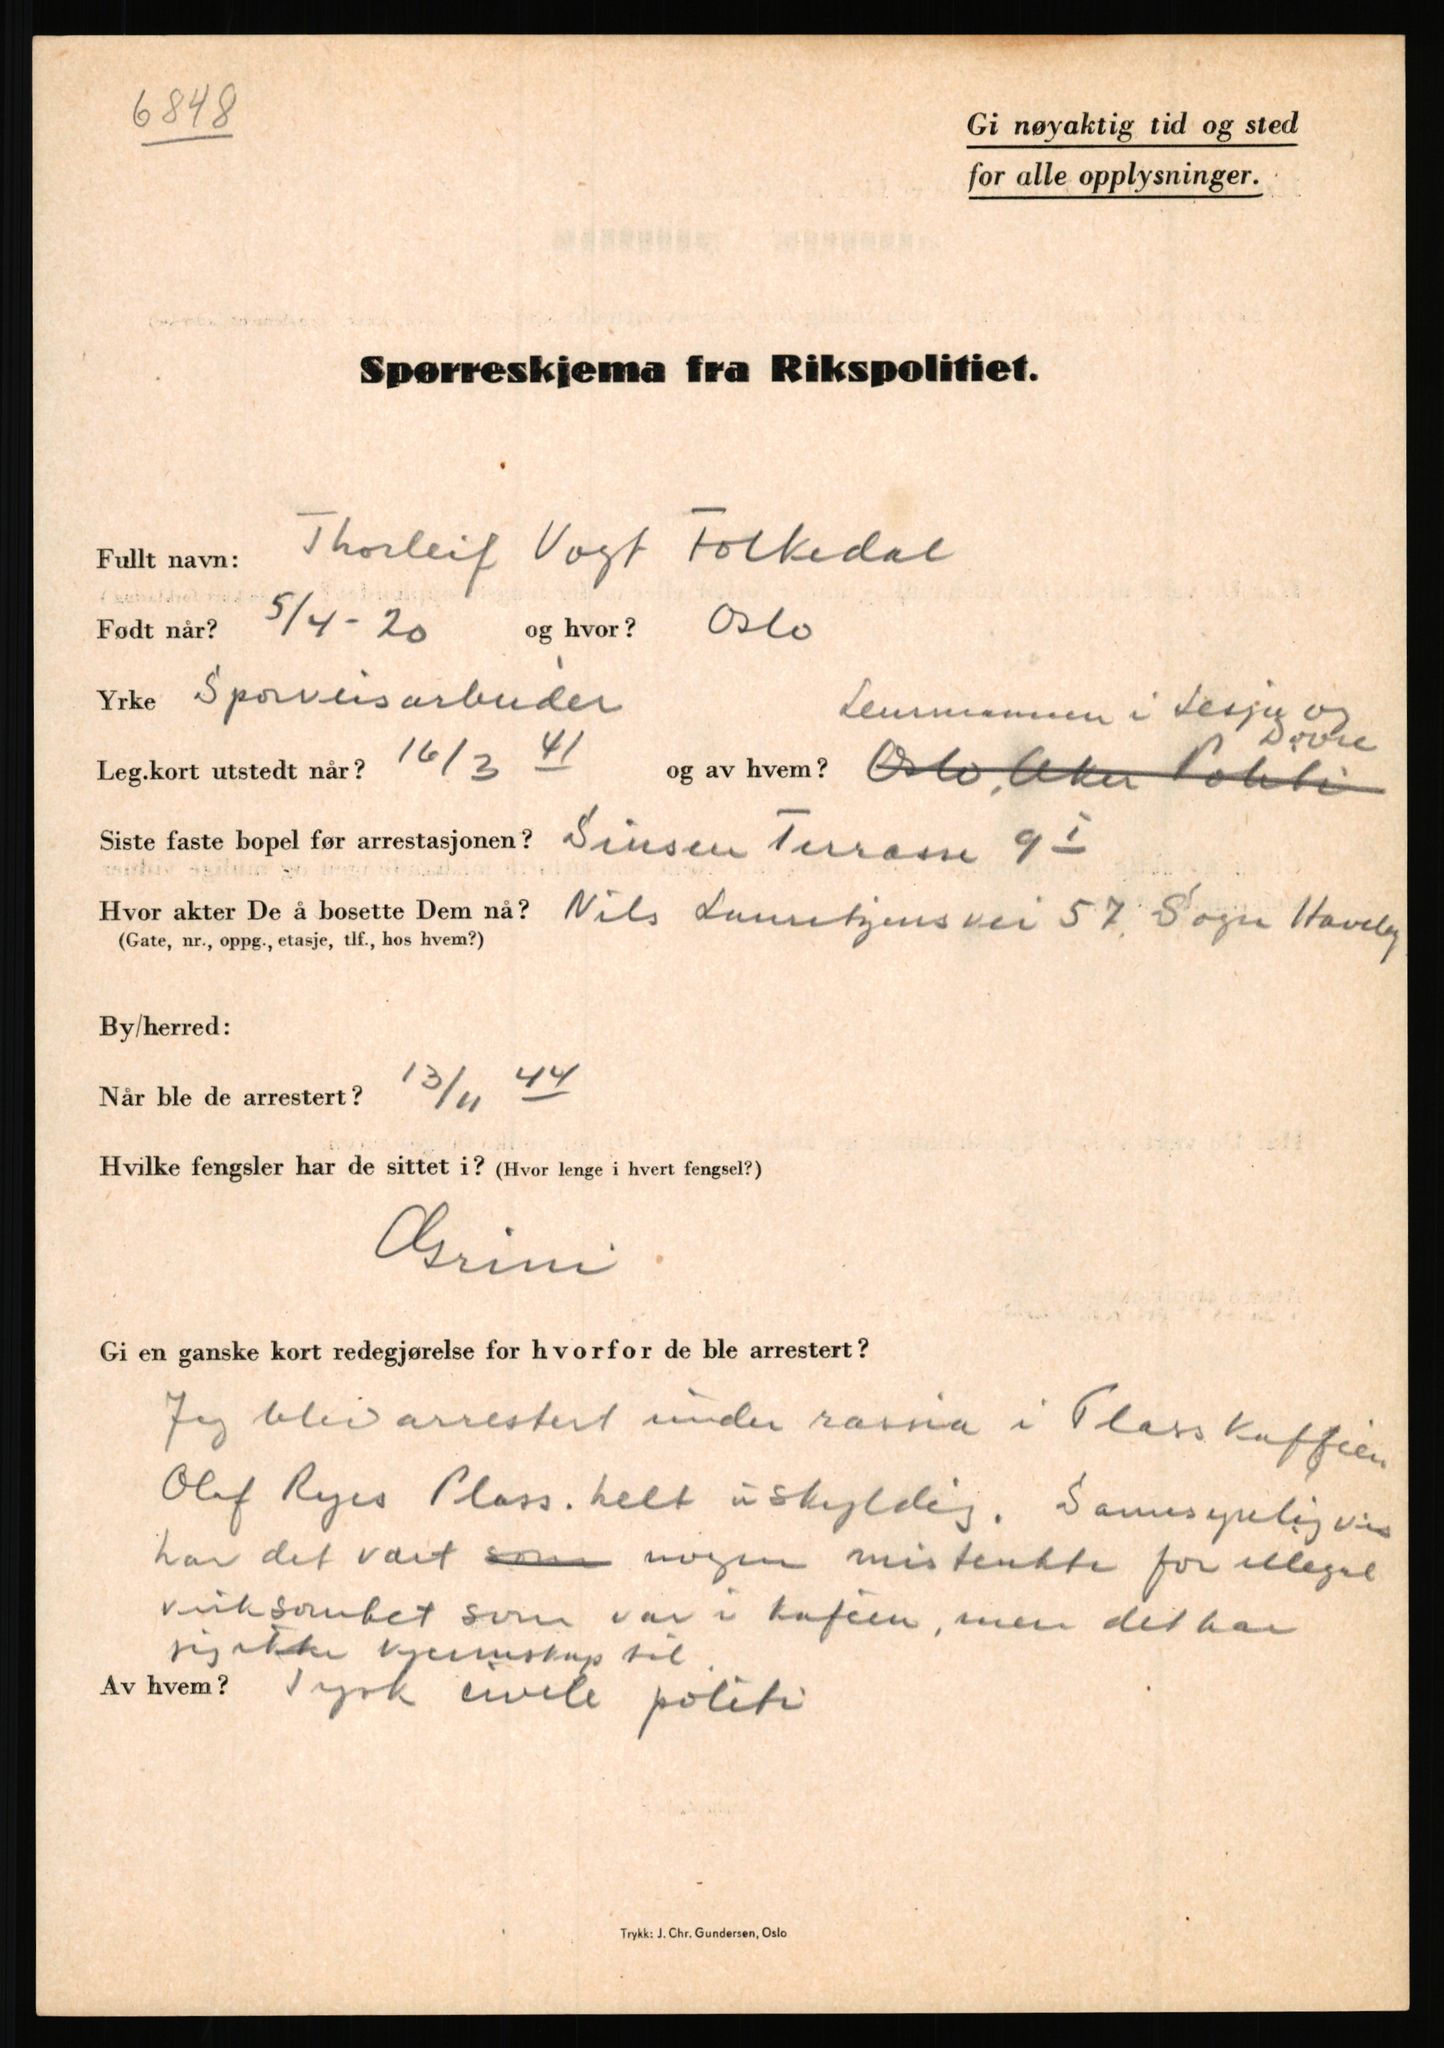 6848
Gi nøyaktig tid og sted
for alle opplysninger.
Spørreskjema fra Rikspolitiet.
Fullt navn: Thorleif Vogt Folkedal
Født når? 5/4-20 og hvor? Oslo
Yrke Sporveisarbeider
Lensmannen i Lesja og
Dovre
Leg.kort utstedt når? 16/3 41 og av hvem? Oslo, Aker Politi
Siste faste bopel før arrestasjonen? Sinsen Terrasse 9 I
Hvor akter De å bosette Dem nå? Nils Lauritzens vei 57. Sogn Haveby
(Gate, nr., oppg., etasje, tlf., hos hvem?)
By/herred:
Når ble de arrestert? 13/11 44
Hvilke fengsler har de sittet i? (Hvor lenge i hvert fengsel?)
Grini
Gi en ganske kort redegjørelse for hvorfor de ble arrestert?
Jeg blei arrestert under rassia i Plasskaffeen
Olaf Ryes Plass. helt uskyldig. Sannsynligvis
har det vært som nogen mistenkte for illegal
virksomhet som var i kafeen, men det har
jeg ikke kjennskap til.
Av hvem? Tysk civile politi
Trykk: J. Chr. Gundersen, Oslo